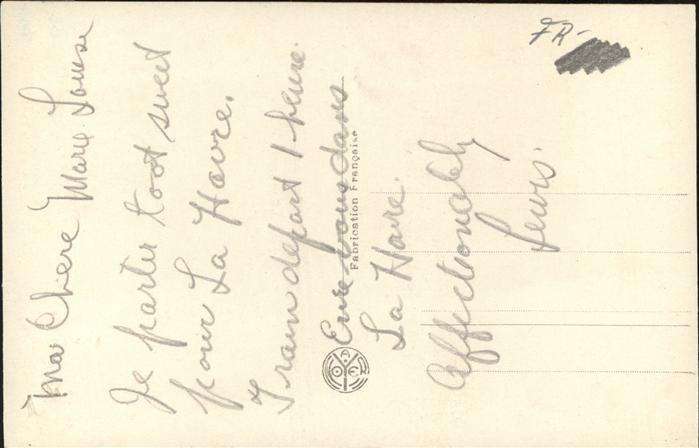 Ma Chere Marie Louise
Je partir toot sweet
pour La Havre.
Train depart 1 heure.
vous dans
La Havre.
Affectionately
Lewis.
Fabrication Française
FR-